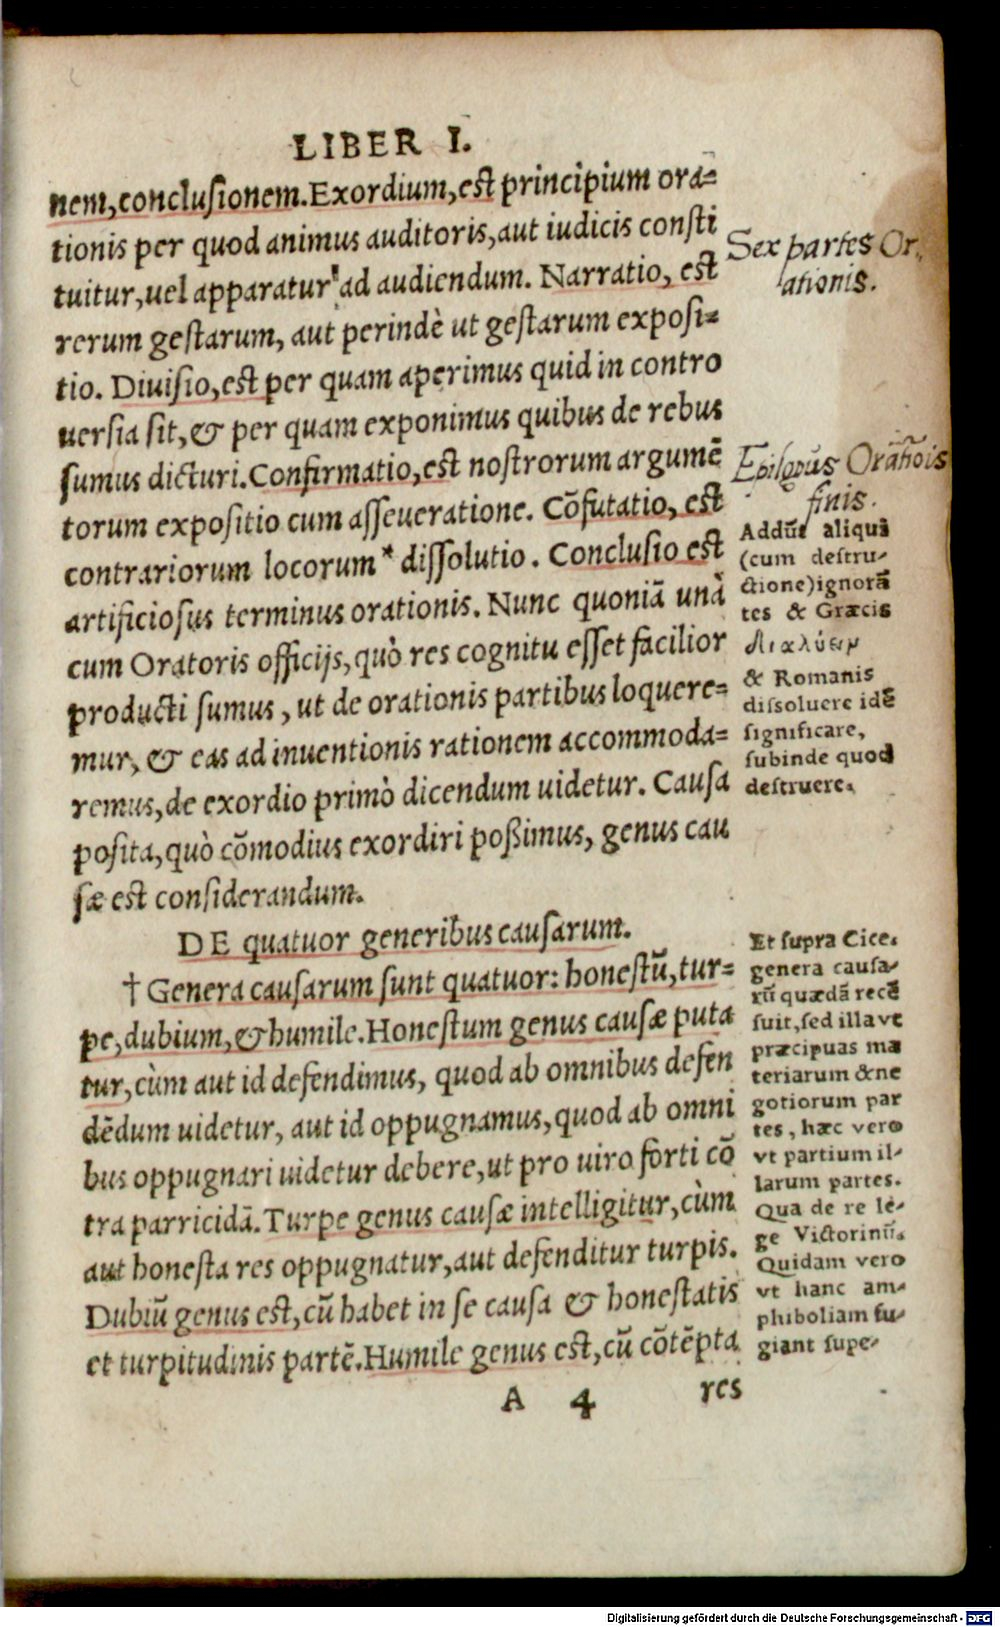 LIBER I.
nem, conclusionem. Exordium, est principium ora=
tionis per quod animus auditoris, aut iudicis consti
tuitur, uel apparatur ad audiendum. Narratio, est
rerum gestarum, aut perindè ut gestarum exposi=
tio. Diuisio, est per quam aperimus quid in contro
uersia sit, & per quam exponimus quibus de rebus
sumus dicturi. Confirmatio, est nostrorum argumẽ
torum expositio cum asseueratione. Cõfutatio, est
contrariorum locorum * dissolutio. Conclusio est
artificiosus terminus orationis. Nunc quoniã unà
cum Oratoris officijs, quò res cognitu esset facilior
producti sumus, ut de orationis partibus loquere=
mur, & eas ad inuentionis rationem accommoda=
remus, de exordio primò dicendum uidetur. Causa
posita, quò cõmodius exordiri poßimus, genus cau
sæ est considerandum.
DE quatuor generibus causarum.
† Genera causarum sunt quatuor: honestũ, tur=
pe, dubium, & humile. Honestum genus causæ puta
tur, cùm aut id defendimus, quod ab omnibus defen
dẽdum uidetur, aut id oppugnamus, quod ab omni
bus oppugnari uidetur debere, ut pro uiro forti cõ
tra parricidã. Turpe genus causæ intelligitur, cùm
aut honesta res oppugnatur, aut defenditur turpis.
Dubiũ genus est, cũ habet in se causa & honestatis
et turpitudinis partẽ. Humile genus est, cũ cõtẽpta
A 4 res
Sex partes Or,
ationis.
Epilogus Orãtiois
finis.
Addũt aliqui
(cum destru-
ctione) ignorã
tes & Græcis
διαλύειν
& Romanis
dissoluere idẽ
significare,
subinde quod
destruere.
Et supra Cice.
genera causa-
rũ quædã recẽ
suit, sed illa vt
præcipuas ma
teriarum & ne
gotiorum par
tes, hæc vero
vt partium il-
larum partes.
Qua de re le-
ge Victorinũ.
Quidam vero
vt hanc am-
phiboliam fu-
giant supe-
Digitalisierung gefördert durch die Deutsche Forschungsgemeinschaft - DFG